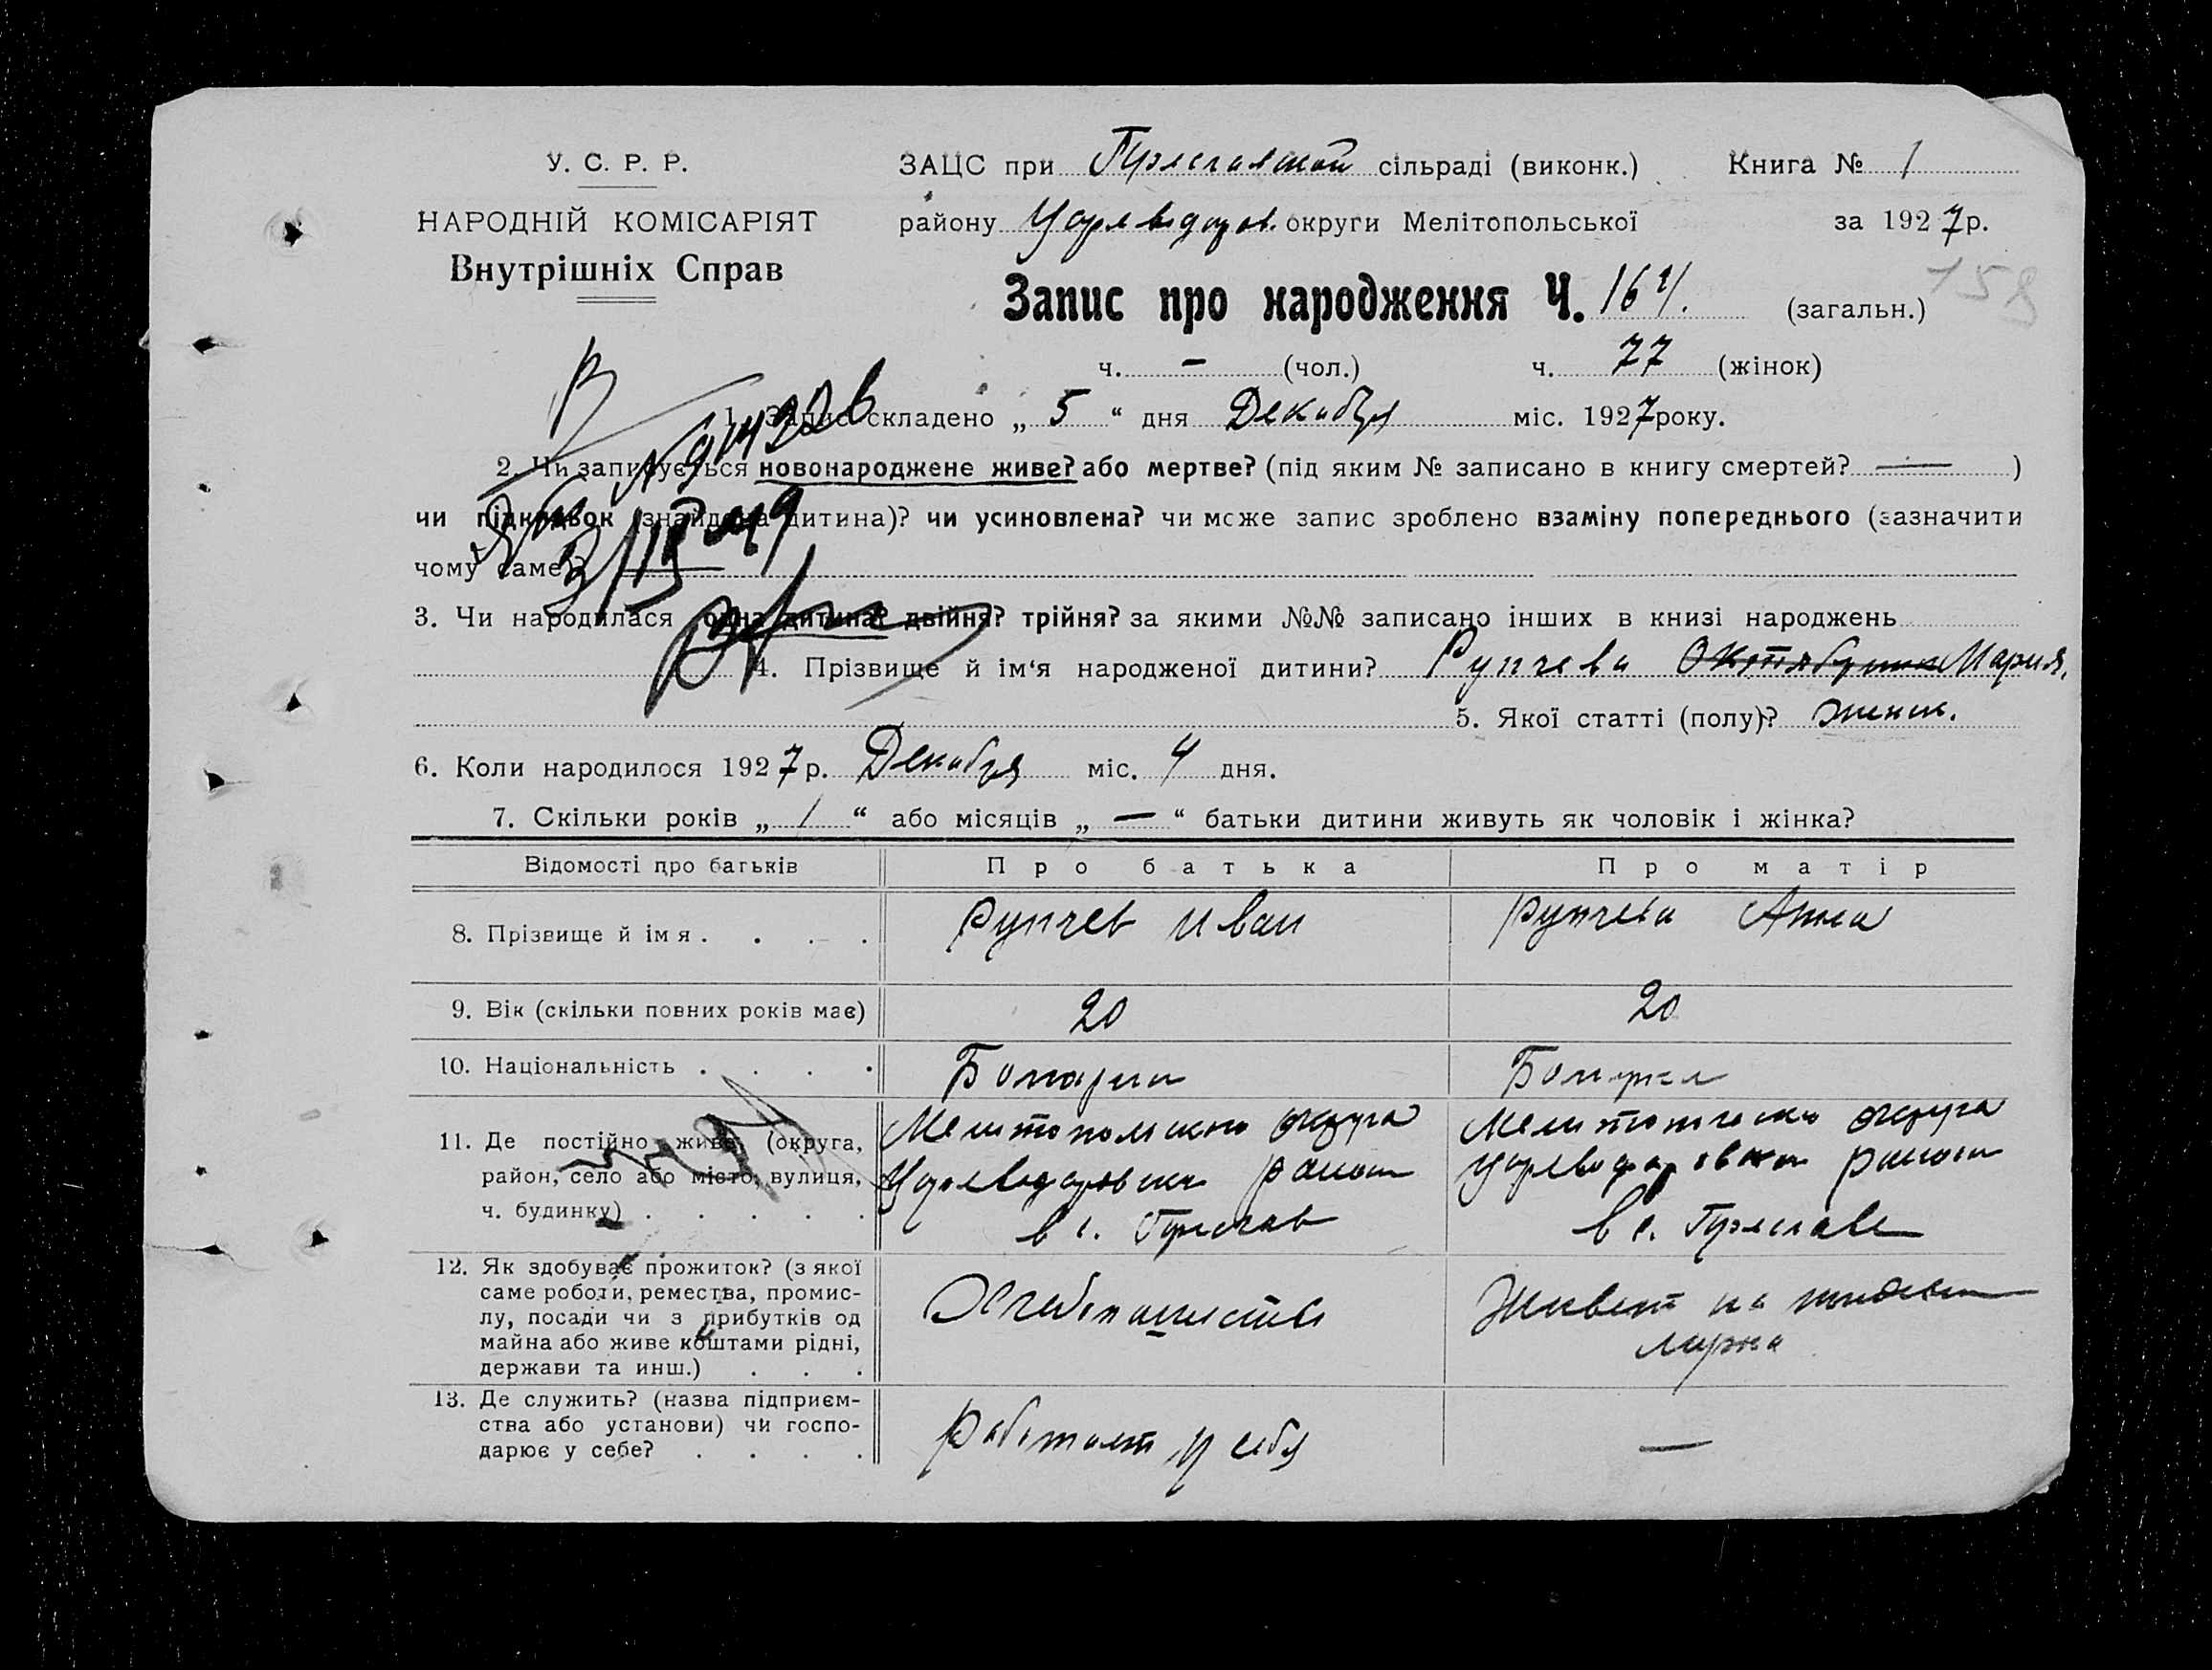 У. С. Р. Р.
НАРОДНІЙ КОМІСАРІЯТ
Внутрішніх Справ
ЗАЦС при Преславской сільраді (виконк.) Книга № 1
району Цареводаров. округи Мелітопольської за 1927р.
Запис про народження Ч. 164. (загальн.) 158
ч. — (чол.) ч. 77 (жінок)
1. Запис складено „ 5 “ дня Декабря міс. 1927 року.
2. Чи записується новонароджене живе? або мертве? (під яким № записано в книгу смертей? — )
чи підкидьок (знайдена дитина)? чи усиновлена? чи може запис зроблено взаміну попереднього (зазначити
чому саме)
3. Чи народилася одна дитина? двійня? трійня? за якими №№ записано інших в книзі народжень
4. Прізвище й ім‘я народженої дитини? Рупчева Октябрина Мария.
5. Якої статті (полу)? женск.
6. Коли народилося 1927 р. Декабря міс. 4 дня.
7. Скільки років „ 1 “ або місяців „ — “ батьки дитини живуть як чоловік і жінка?
Відомості про батьків Про батька Про матір
8. Прізвище й імя . . . . Рупчев Иван Рупчева Анна
9. Вік (скільки повних років має) 20 20
10. Національність . . . .
11. Де постійно живе (округа,
район, село або місто, вулиця,
ч. будинку) . . . . .
округа
район
в с. Преслав
округа
район
в с. Преславе
12. Як здобуває прожиток? (з якої
саме роботи, ремества, промис-
лу, посади чи з прибутків од
майна або живе коштами рідні,
держави та инш.) . . .
Живет на
мужа
13. Де служить? (назва підприєм-
ства або установи) чи госпо-
дарює у себе? . . . .
Работает у себя
—